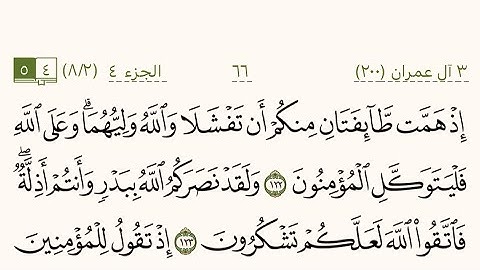 ٣ آل عمران (٢٠٠) ٦٦ الجزء ٤ (٨/٢) ٤ ٥
إِذْ هَمَّت طَّآئِفَتَانِ مِنكُمْ أَن تَفْشَلَا وَٱللَّهُ وَلِيُّهُمَا ۗ وَعَلَى ٱللَّهِ
فَلْيَتَوَكَّلِ ٱلْمُؤْمِنُونَ ١٢٢ وَلَقَدْ نَصَرَكُمُ ٱللَّهُ بِبَدْرٍ وَأَنتُمْ أَذِلَّةٌ ۖ
فَٱتَّقُوا۟ ٱللَّهَ لَعَلَّكُمْ تَشْكُرُونَ ١٢٣ إِذْ تَقُولُ لِلْمُؤْمِنِينَ